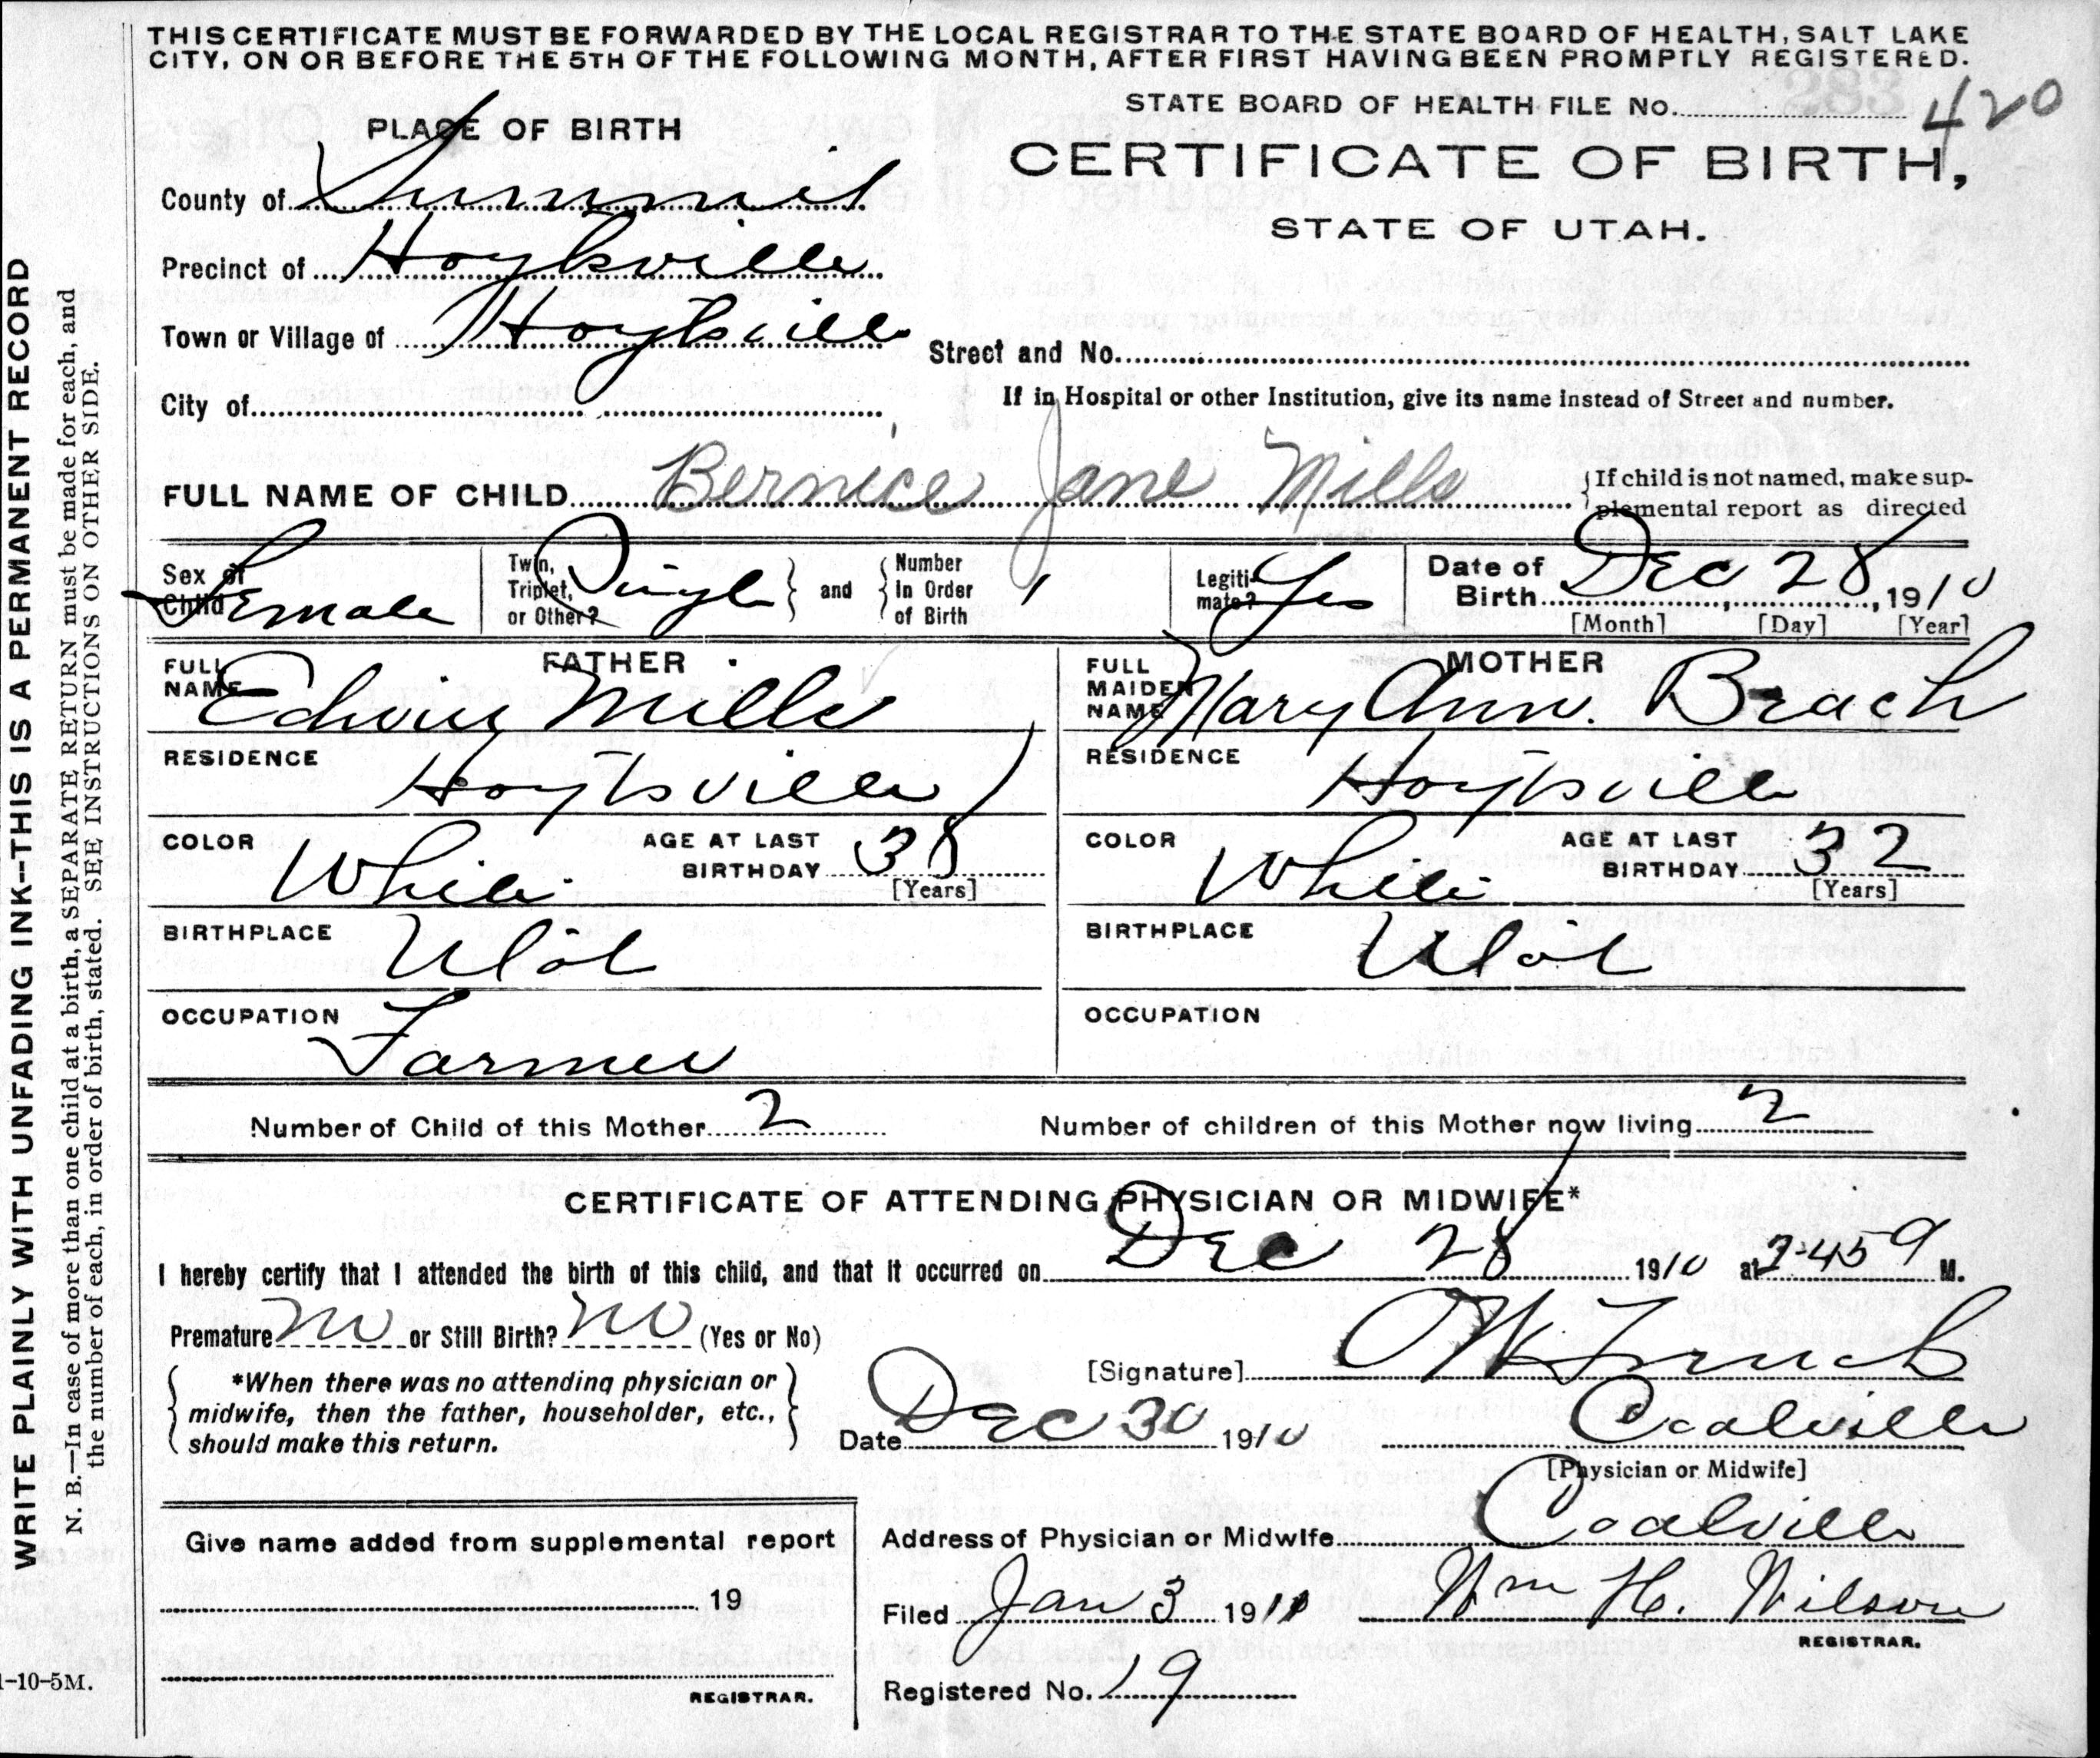 THIS CERTIFICATE MUST BE FORWARDED BY THE LOCAL REGISTRAR TO THE STATE BOARD OF HEALTH, SALT LAKE
CITY, ON OR BEFORE THE 5TH OF THE FOLLOWING MONTH, AFTER FIRST HAVING BEEN PROMPTLY REGISTERED.
STATE BOARD OF HEALTH FILE No. 420
PLACE OF BIRTH
CERTIFICATE OF BIRTH,
STATE OF UTAH.
County of Summit
Precinct of Hoytsville
Town or Village of Hoytsville
Street and No.
City of
If in Hospital or other Institution, give its name instead of Street and number.
FULL NAME OF CHILD Bernice Jane Mills
If child is not named, make sup-
plemental report as directed
Sex of Child Female
Twin, Triplet, or Other? Single and Number in Order of Birth 1
Legiti-mate? Yes
Date of Birth Dec 28, 1910
[Month] [Day] [Year]
FATHER
FULL NAME Edwin Mills
RESIDENCE Hoytsville
COLOR White AGE AT LAST BIRTHDAY 38
[Years]
BIRTHPLACE Utah
OCCUPATION Farmer
MOTHER
FULL MAIDEN NAME Mary Ann. Beach
RESIDENCE Hoytsville
COLOR White AGE AT LAST BIRTHDAY 32
[Years]
BIRTHPLACE Utah
OCCUPATION
Number of Child of this Mother 2
Number of children of this Mother now living 2
CERTIFICATE OF ATTENDING PHYSICIAN OR MIDWIFE*
I hereby certify that I attended the birth of this child, and that it occurred on Dec 28 1910 at M.
Premature no or Still Birth? no (Yes or No)
[Signature]
*When there was no attending physician or
midwife, then the father, householder, etc.,
should make this return.
Date Dec 30 1910 Coalville
[Physician or Midwife]
Give name added from supplemental report
19
REGISTRAR.
Address of Physician or Midwife Coalville
Filed Jan 3 1911 Wm H. Wilson
REGISTRAR.
Registered No. 19
WRITE PLAINLY WITH UNFADING INK--THIS IS A PERMANENT RECORD
N. B.—In case of more than one child at a birth, a SEPARATE RETURN must be made for each, and
the number of each, in order of birth, stated. SEE INSTRUCTIONS ON OTHER SIDE.
1-10-5M.